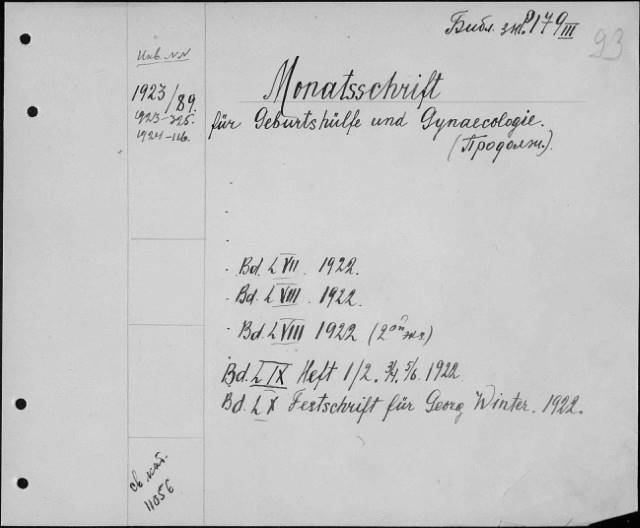 Библ. экз. 179 III
93
Инв. NN
1923/89.
1923-325.
1924-116.
Monatsschrift
für Geburtshülfe und Gynaecologie.
(Продолж.).
Bd. LVII. 1922.
Bd. LVIII. 1922.
Bd. LVIII 1922 (2ой экз.)
Bd. LIX Heft 1/2. 3/4. 5/6. 1922
Bd. LX Festschrift für Georg Winter. 1922.
св. кат.
11056